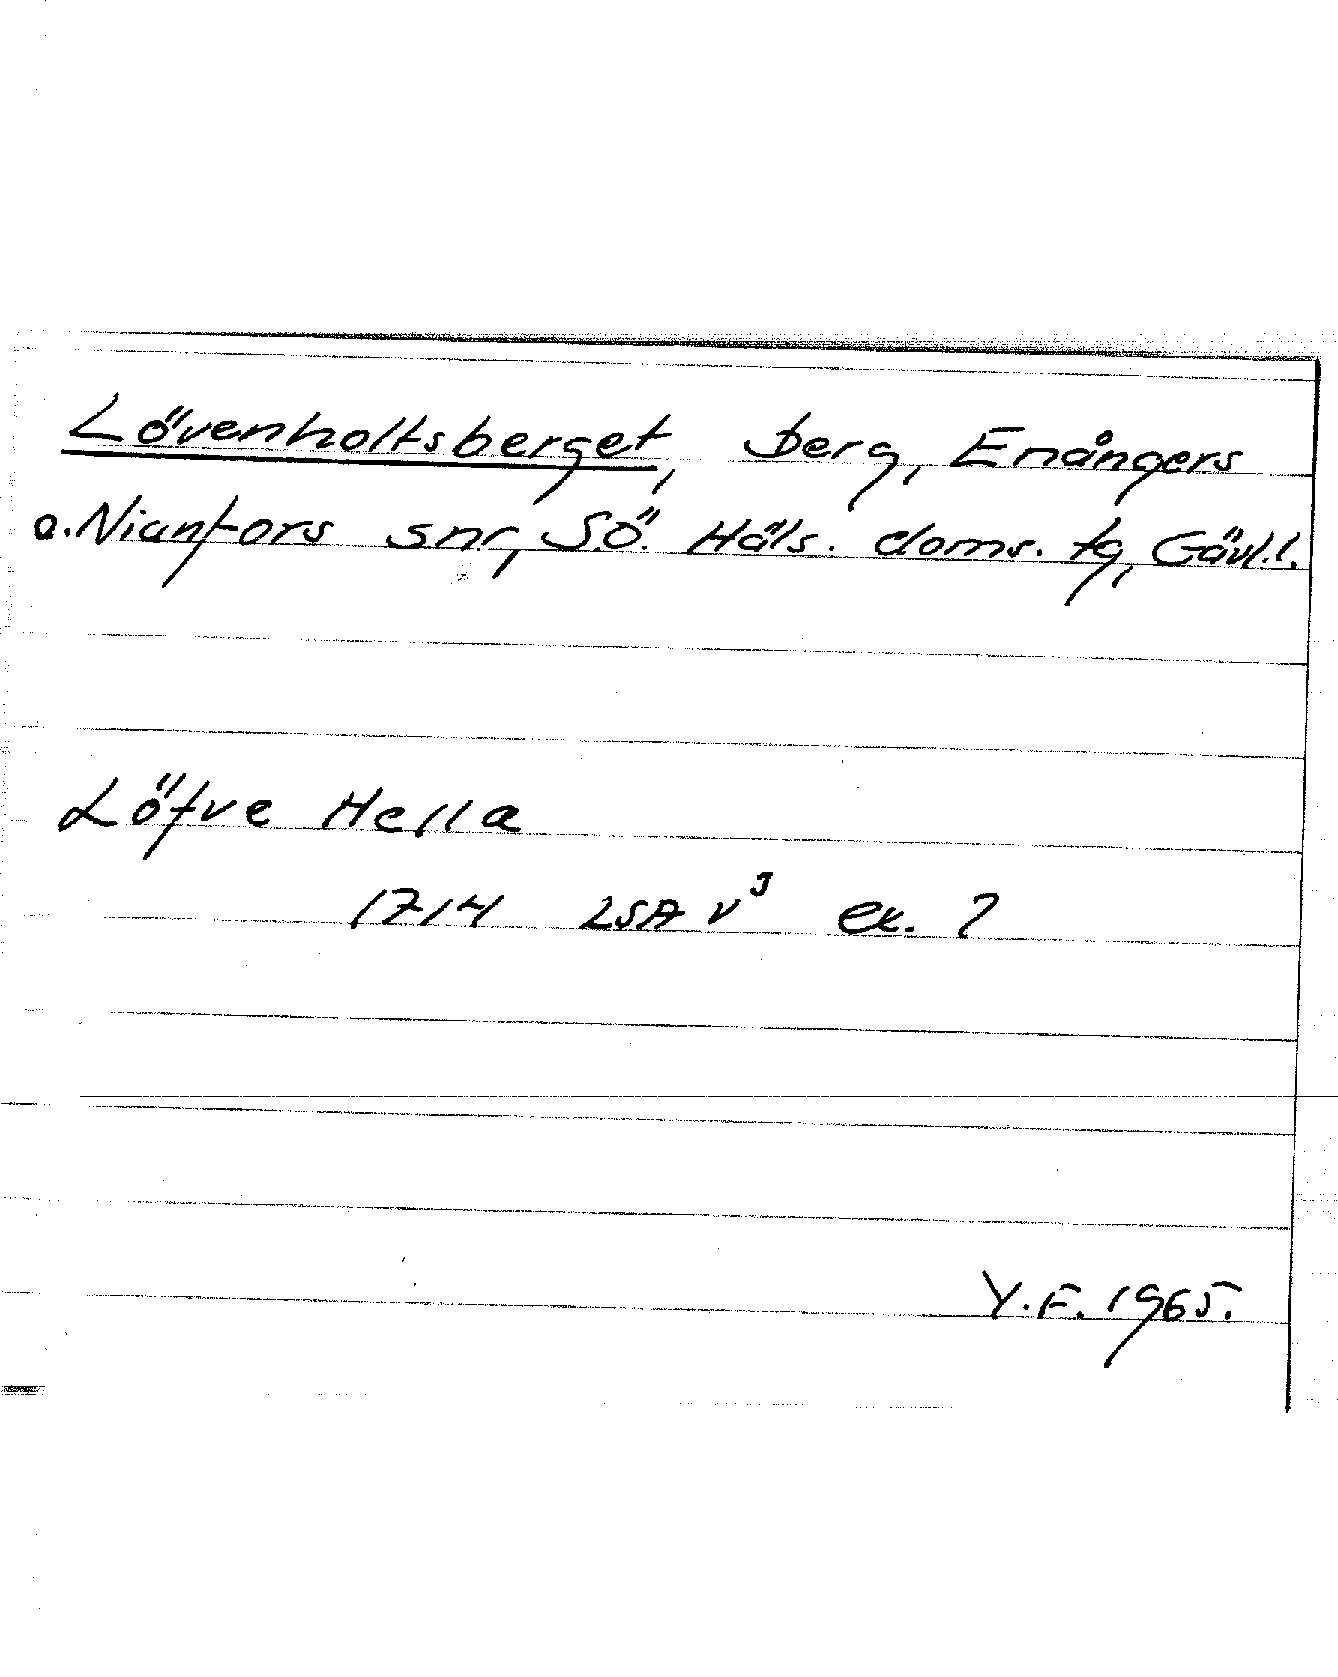 Lövenholtsberget, berg, Enångers
o. Nianfors snr, Sö. Häls. doms. tg, Gävl.l.
Löfve Hella
1714 LSA V³ ex. ?
Y.F. 1965.